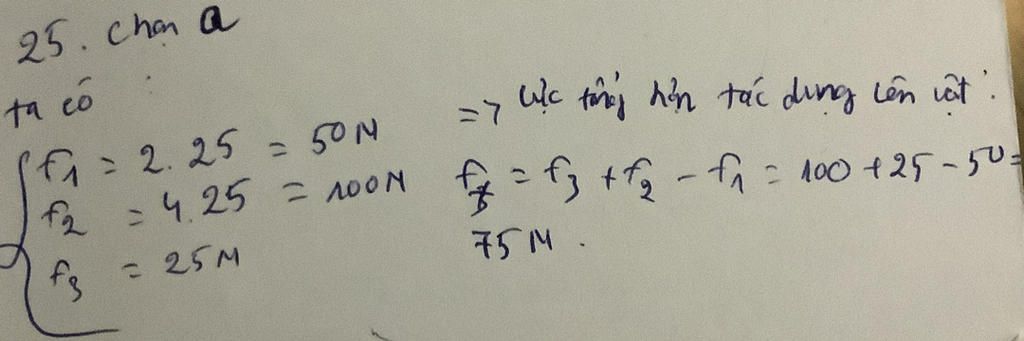 25. chọn a
ta có :
f1 = 2.25 = 50N
f2 = 4.25 = 100N
f3 = 25N
=> lực tổng hợp tác dụng lên vật :
f = f3 + f2 - f1 = 100 + 25 - 50 =
75N.